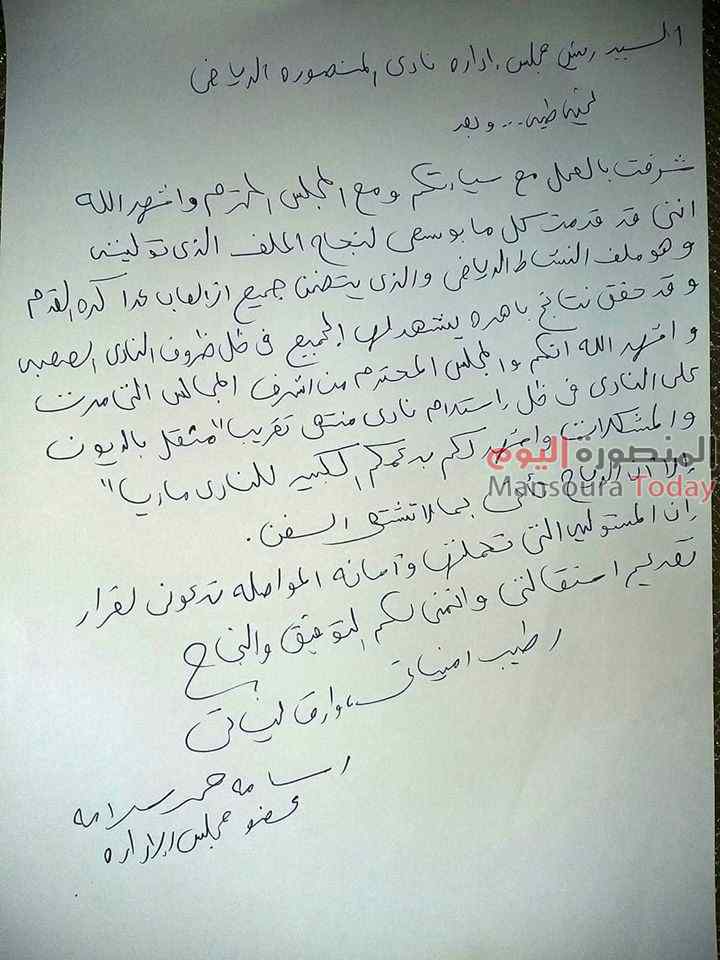 السيد رئيس مجلس اداره نادى المنصوره الرياضى
تحيه طيبه... وبعد
شرفت بالعمل مع سيادتكم ومع المجلس المحترم واشهد الله
اننى قد قدمت كل ما بوسعى لنجاح الملف الذى توليته
وهو ملف النشاط الرياضى والذى يتضمن جميع الالعاب عدا كره القدم
وقد حقق نتائج باهره يشهد لها الجميع فى ظل ظروف النادى الصعبه
واشهد الله انكم والمجلس المحترم من اشرف المجالس التى مرت
على النادى فى ظل إستلام نادى منتهى تقريبا" مثقل بالديون
والمشكلات لكم بدعمكم الكبير للنادى ماديا"
إلا ان الرياح تأتى بما لا تشتهى السفن.
إن المسئوليه التى تحملتها وأمانه المواصله تدعونى لقرار
تقديم استقالتى واتمنى لكم التوفيق والنجاح
اطيب امنياتى وارق تحياتى
سلامه
عضو مجلس الإداره
المنصورة اليوم
Mansoura Today